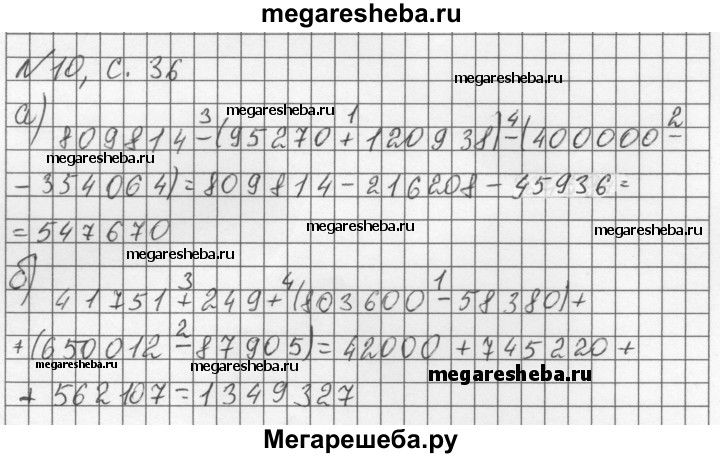 megaresheba.ru
№10, с. 36
megaresheba.ru
а) megaresheba.ru
3 1 4 2
809814-(95270+120938)-(400000-
megaresheba.ru
-354064)=809814-216208-45936=
=547670 megaresheba.ru megaresheba.ru
megaresheba.ru
б) 3 4 1
41751+249+(803600-58380)+
2
+(650012-87905)=42000+745220+
megaresheba.ru megaresheba.ru
+562107=1349327
Мегарешеба.ру